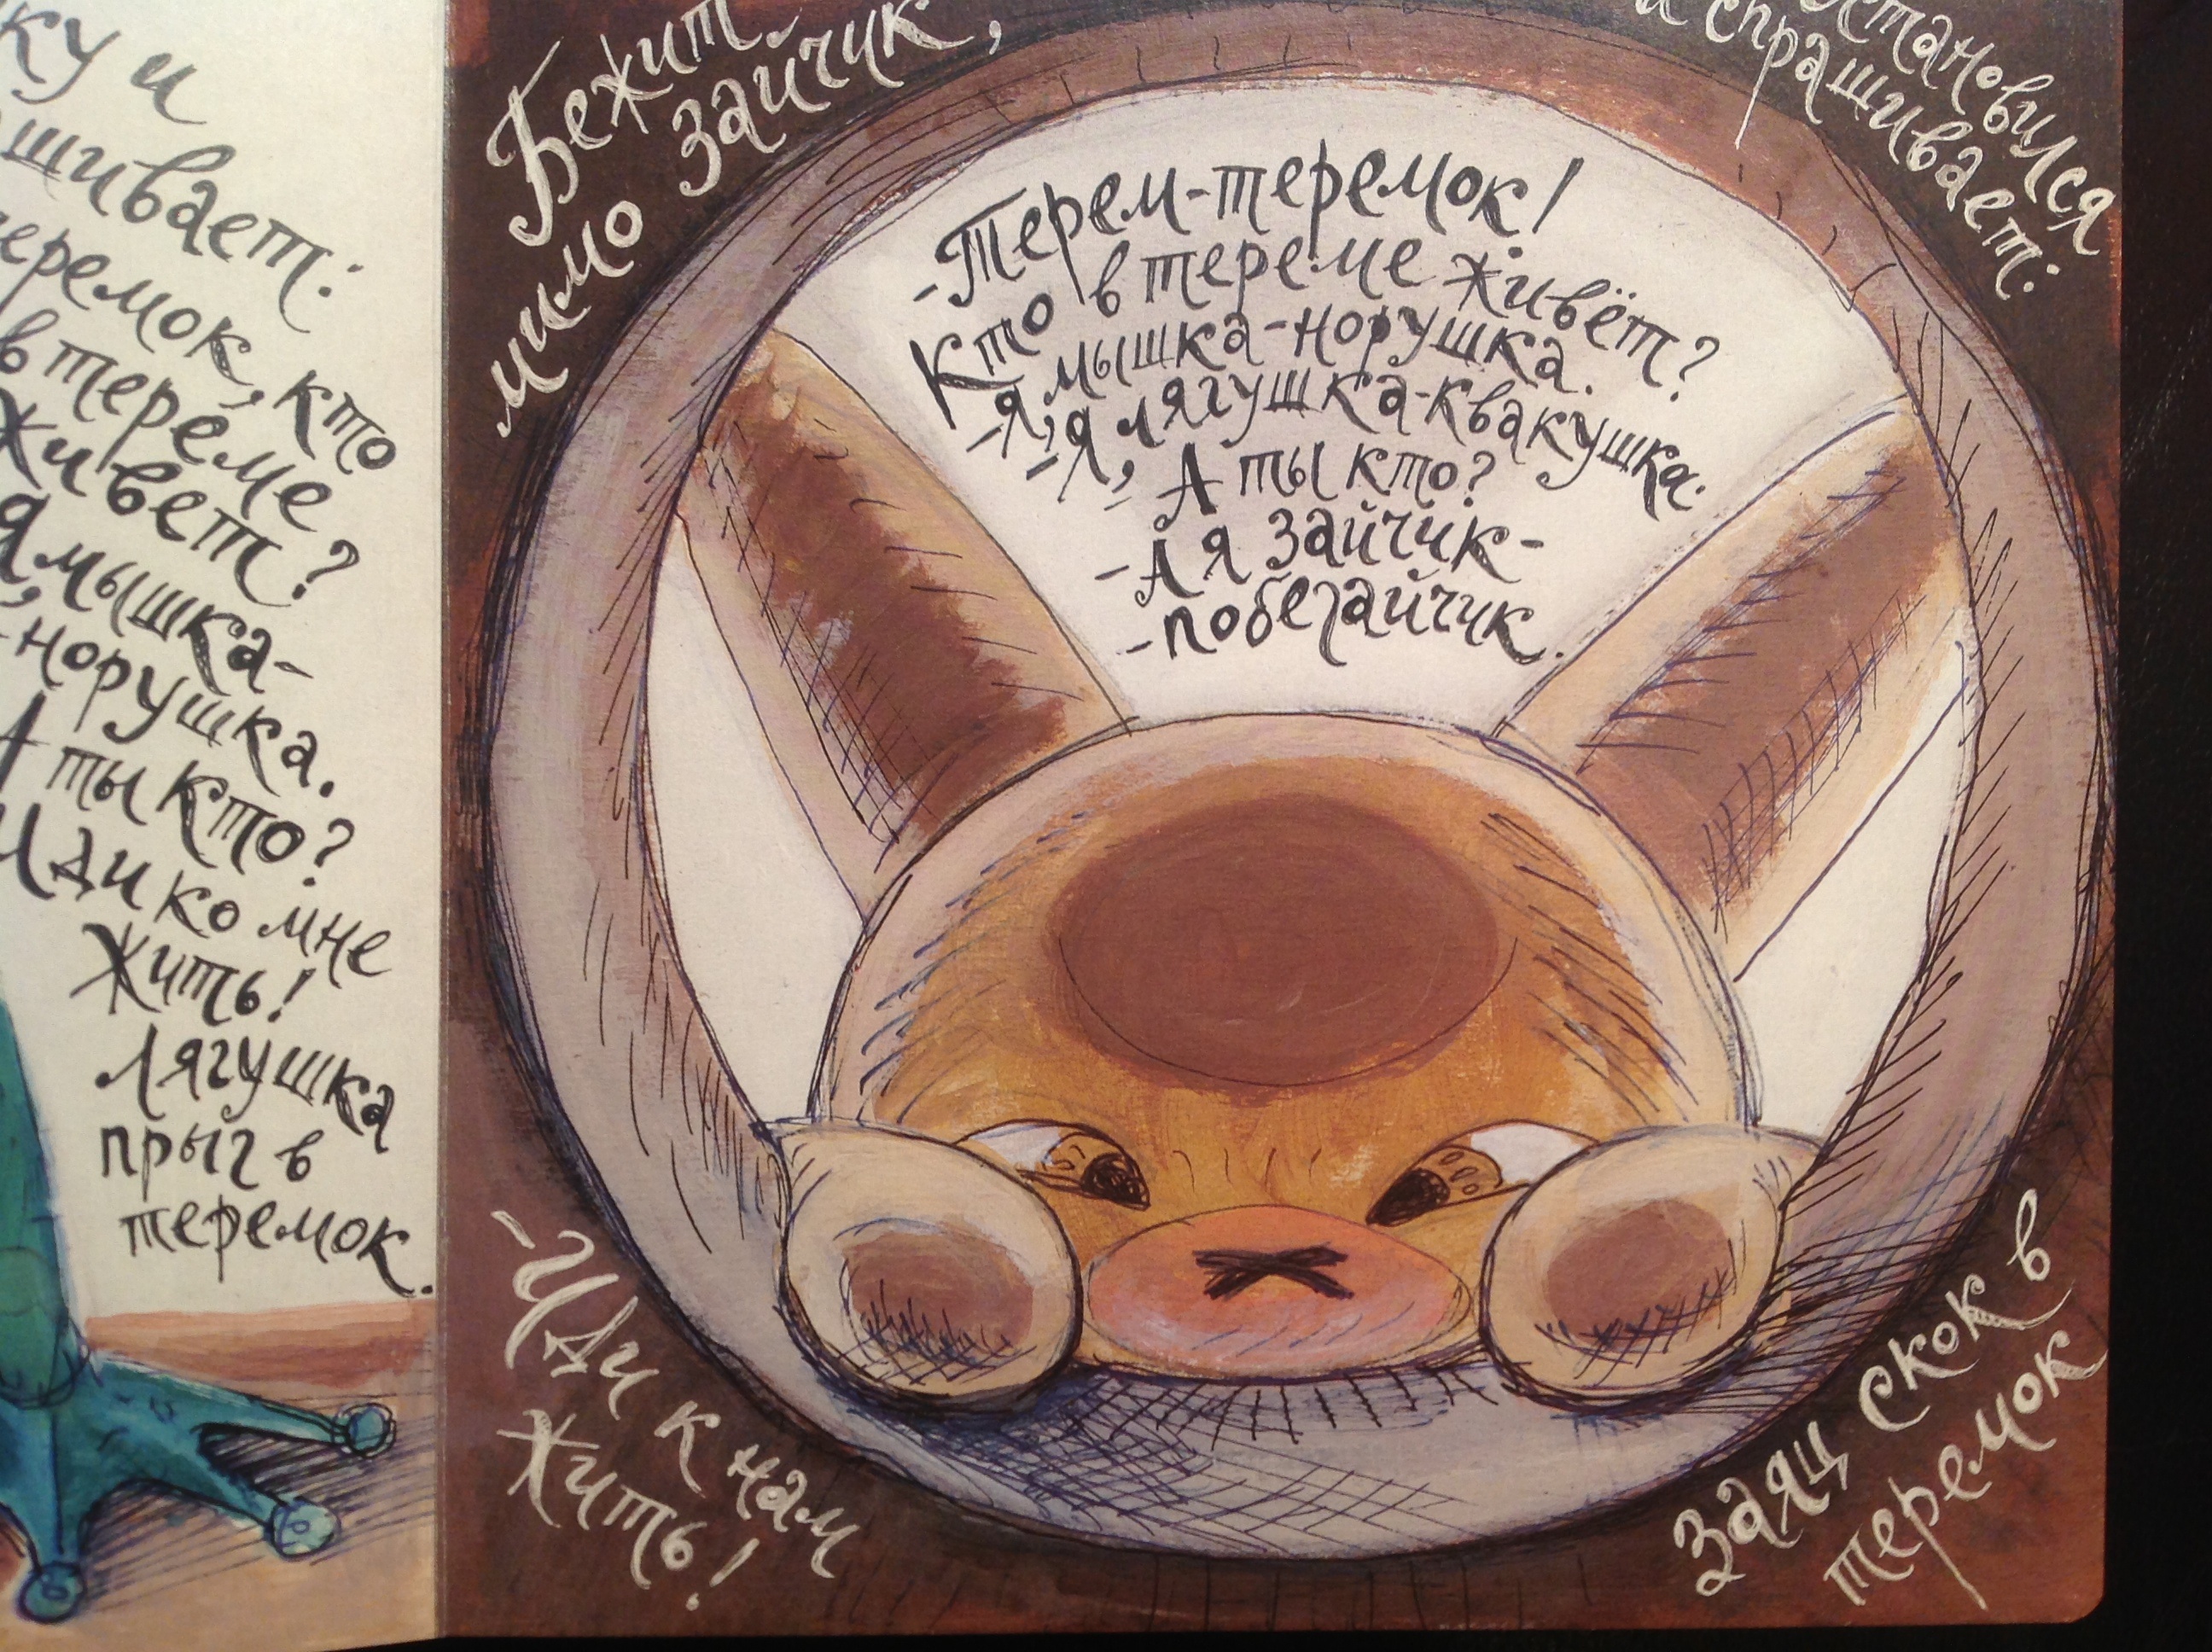 ку и
шивает:
еремок, кто
в тереме
живет?
Я, мышка-
-норушка.
А ты кто?
Иди ко мне
жить!
Лягушка
прыг в
теремок.
Бежит
мимо зайчик,
становился
и спрашивает:
-Терем-теремок!
Кто в тереме живёт?
-Я, мышка-норушка.
-Я, лягушка-квакушка.
- А ты кто?
- А я зайчик-
-побегайчик.
-Иди к нам
жить!
Заяц скок в
теремок